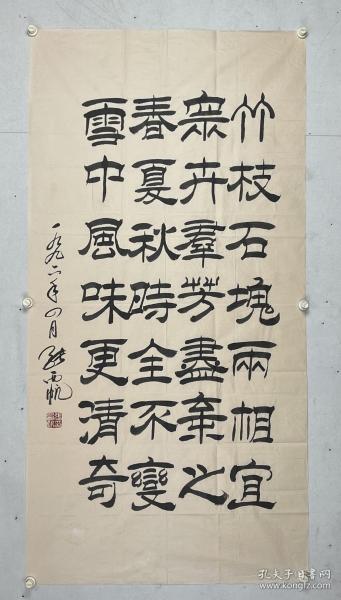 竹枝石塊兩相宜
眾卉羣芳盡棄之
春夏秋時全不變
雪中風味更清奇
一九九六年四月
孔夫子旧书网